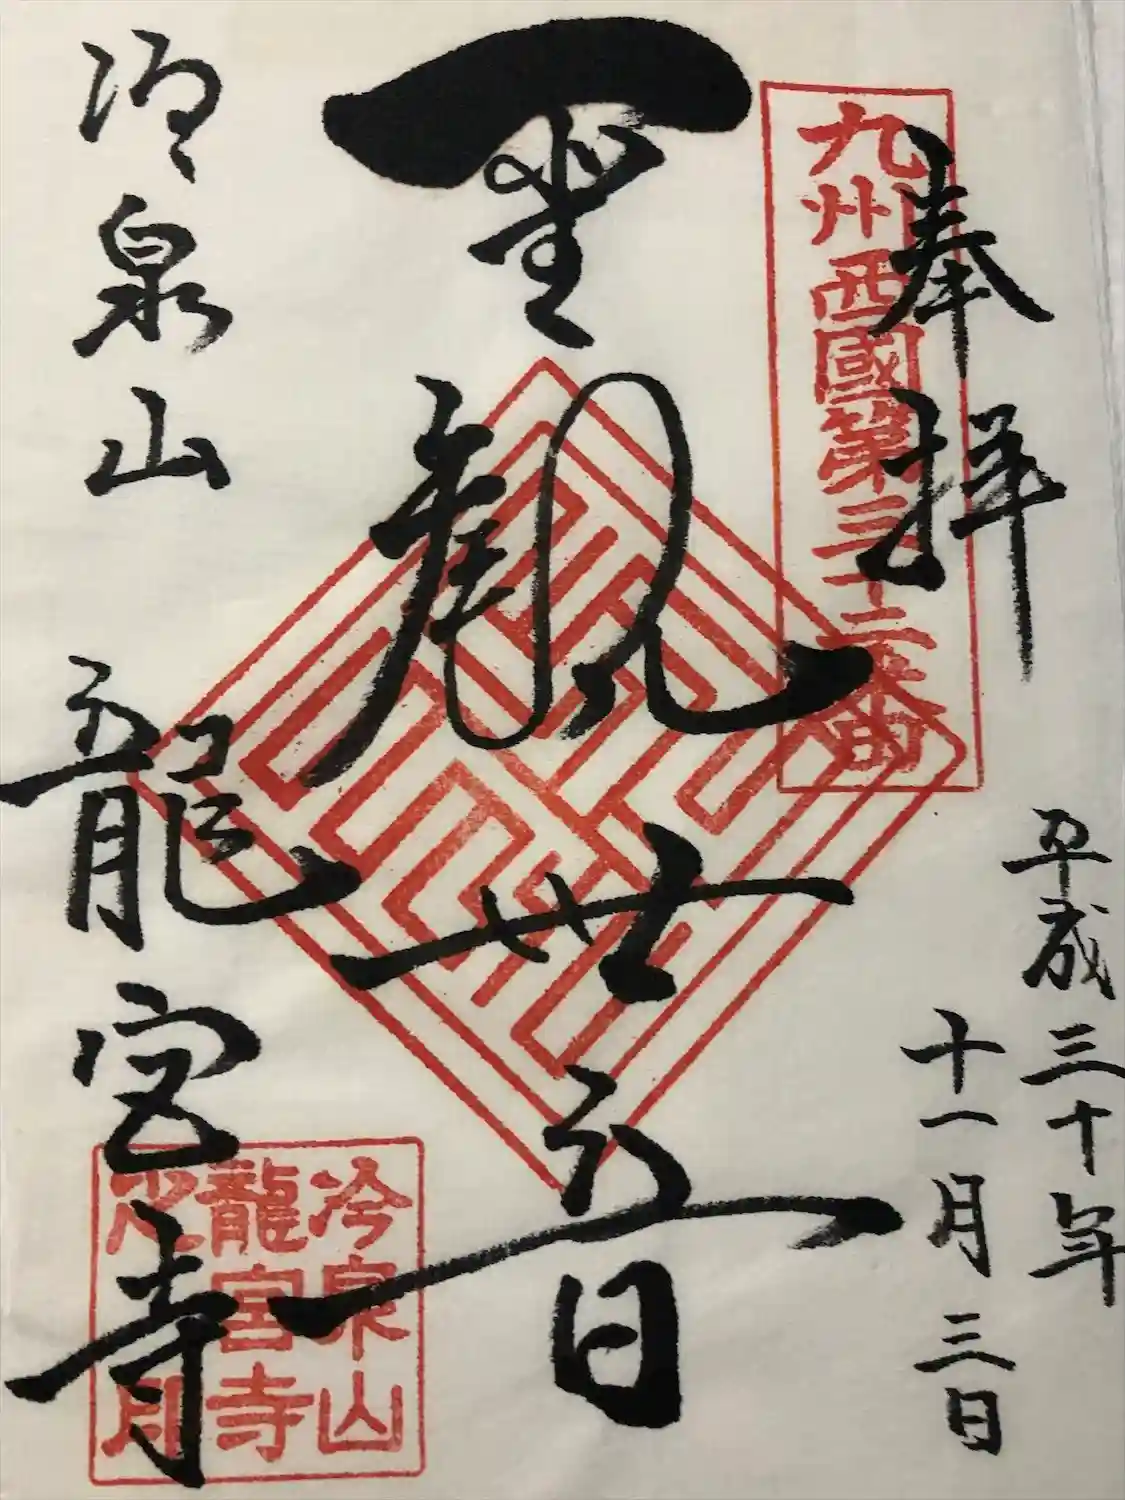 奉拝
平成三十年
十一月三日
九州西國第三十二番
聖観世音
冷泉山 龍宮寺
冷泉山
龍宮寺